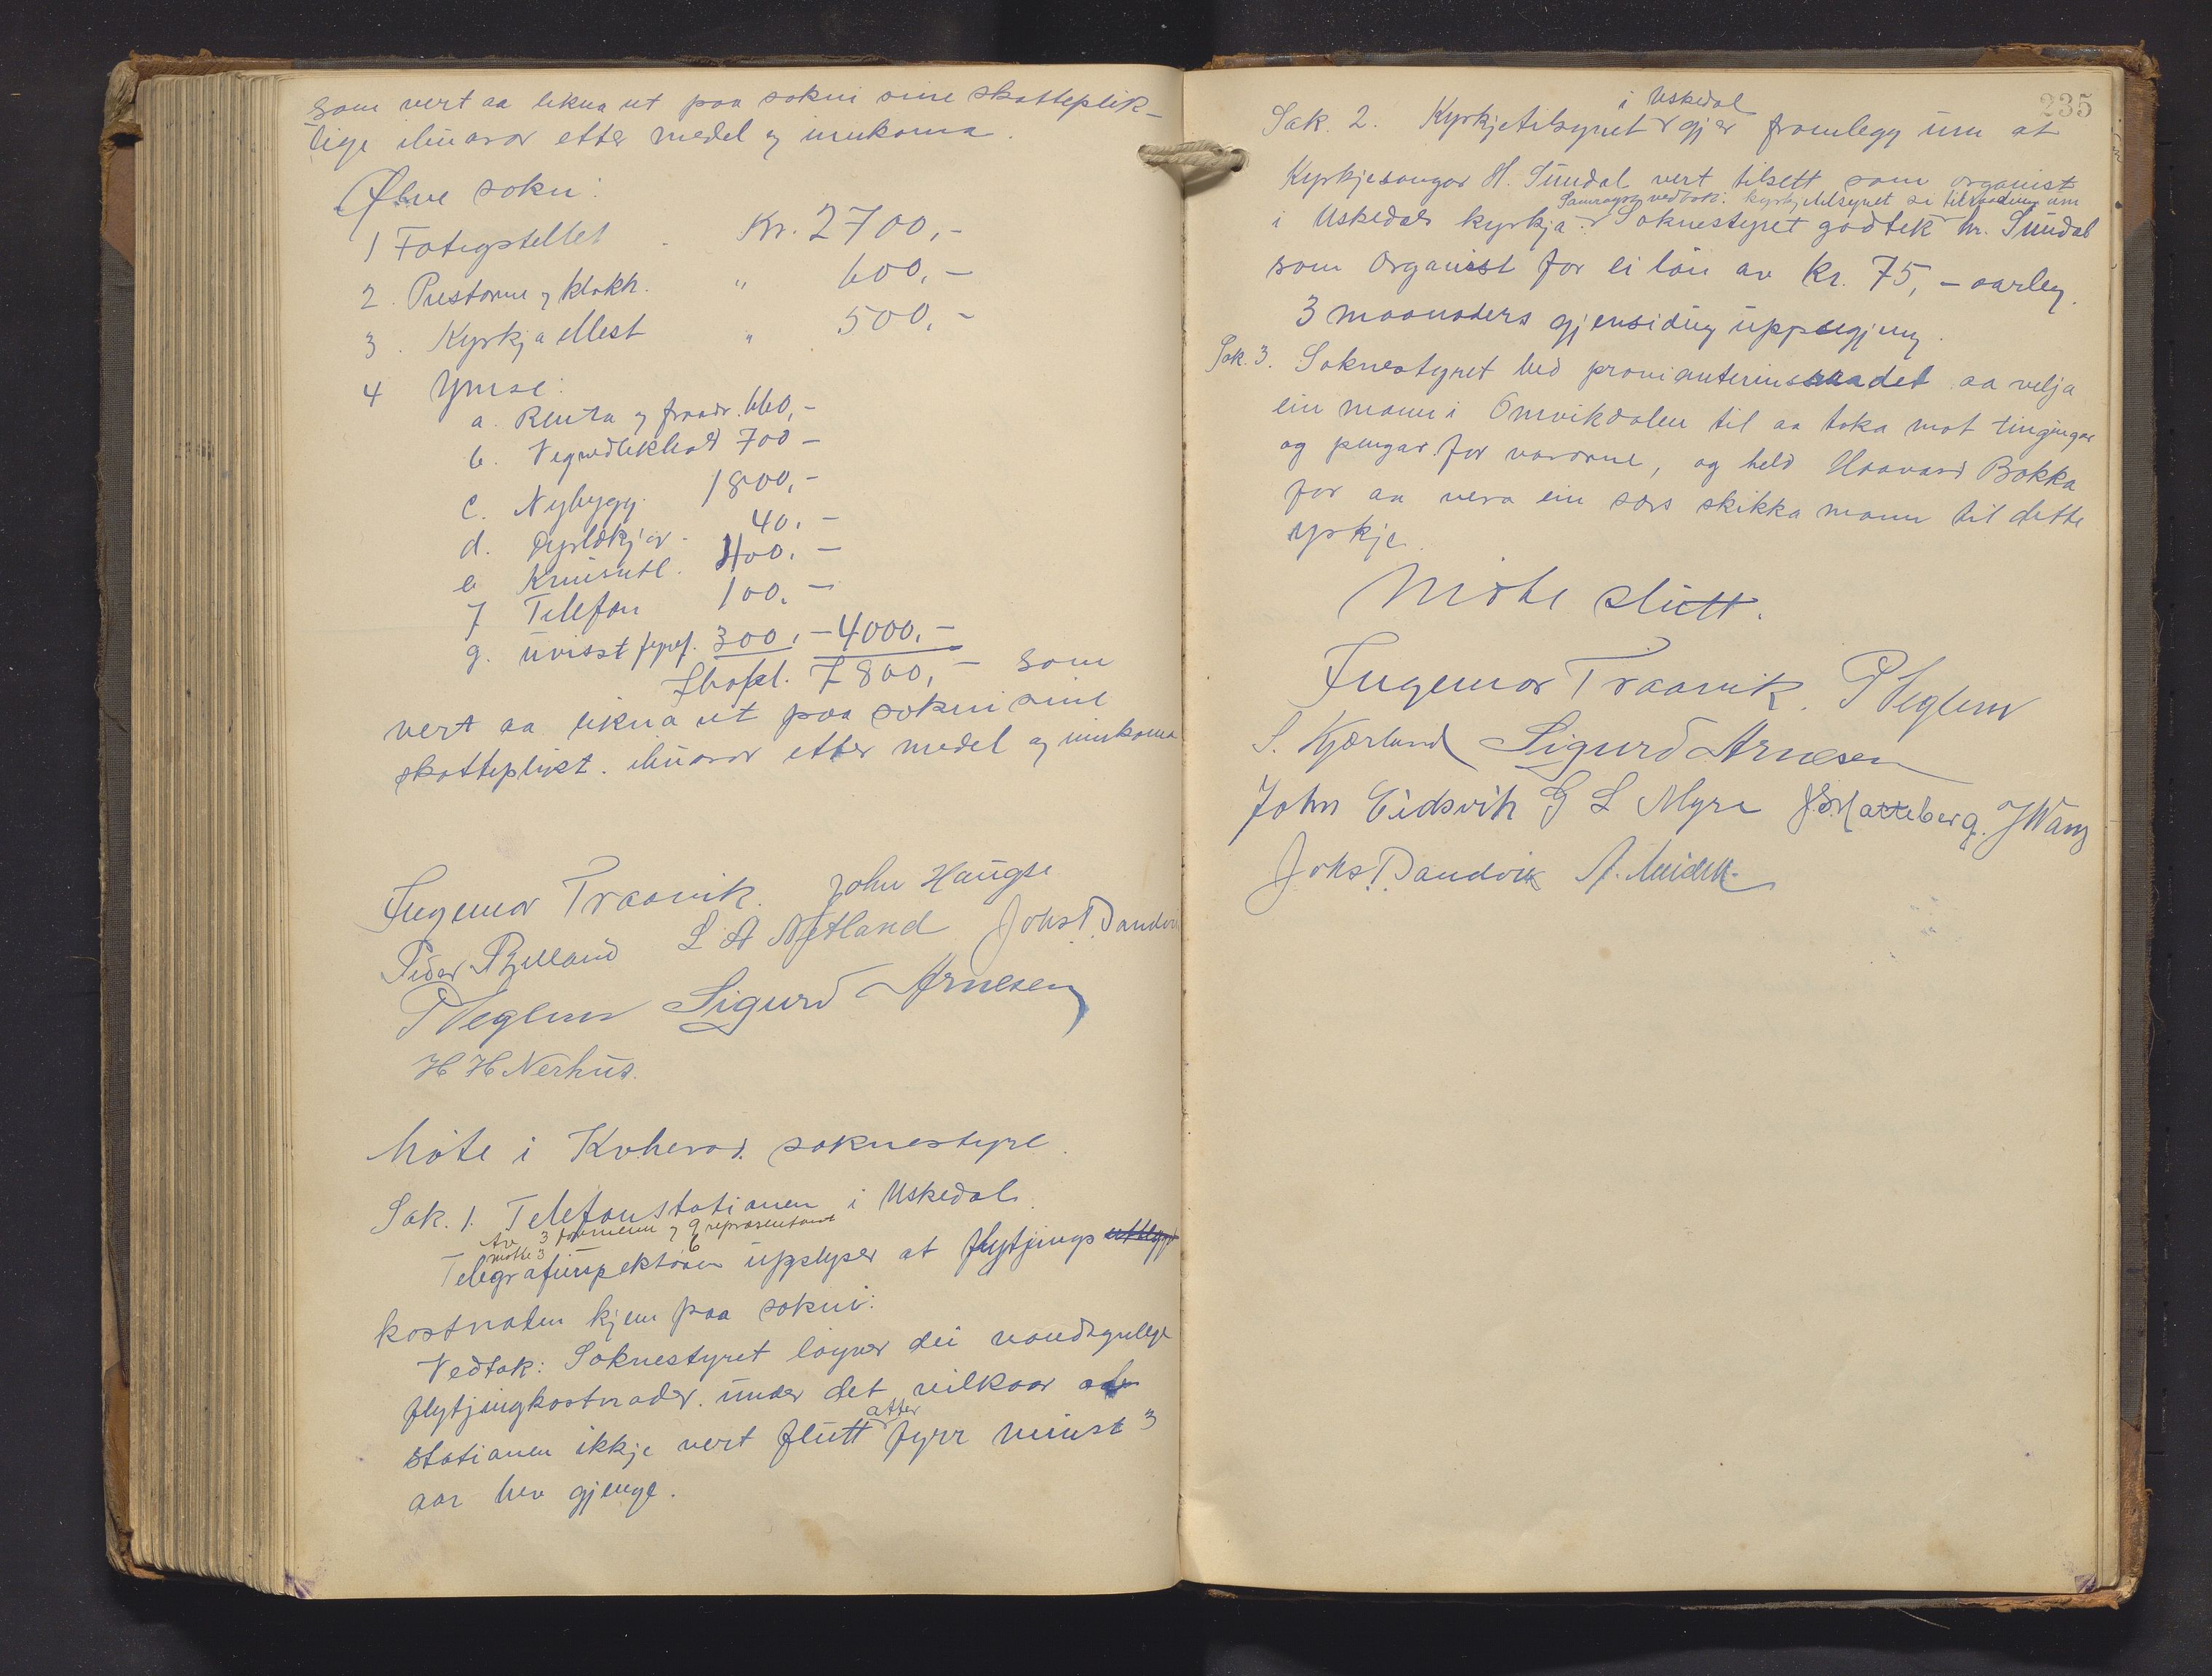 som vert aa likna ut paa sokni sine skatteplik-
tige ibuarar etter medel og innkoma.
Ølve sokn:
1 Fatigstellet Kr. 2700,-
2. Prestarne og klokk. " 600,-
3. Kyrkja Mest " 500,-
4 Ymse:
a. Renta og fraadr. 660,-
b. Vegvedlikhald 700-
c. Nybygg. 1800,-
d. Dyrlækjar. 40,-
e Kruisutl. 400,-
f Telefon 100,-
g. uvisst 300,- 4000,-
Tilsaml. 7800,- som
vert aa likna ut paa sokni sine
skatteplikt. ibuarar etter medel og innkoma
Ingemar Traavik. John Haugse
Peder L A Netland Johs P. Sandvi
P Veglem Sigurd Arnesen
H H Nerhus.
Møte i Kvherad soknestyre.
Sak. 1. Telefonstationen i Uskedal.
Av 3 formenn og 9 representant
møtte 3 6
Telegrafinspektøren upplyser at flytjings utlegg
kostnaden kjem paa sokni:
Vedtak: Soknestyret løyver dei naudsynlege
flytjingkostnader. under det vilkaar at
stationen ikkje vert flutt atter fyrr minst 3
aar hev gjenge.
235
Sak. 2. Kyrkjetilsynet i Uskedal gjer framlegg um at
Kyrkjesongar H. Sundal vert tilsett som organist
Samrøystg vedtak: kyrkjetilsynet si tilraading um
i Uskedals kyrkja. Soknestyret godtek hr. Sundal
som Organist for ei løn av Kr. 75,- aarleg.
3 maanaders gjensidig uppsegjing.
Sak. 3. Soknestyret bed provianterinsraadet aa velja
ein mann i Omvikdalen til aa taka mot tingingar
og pengar for vararne, og held Haavard Bakka
for aa vera ein særs skikka mann til dette
yrkje.
Møte slutt.
Ingemar Traavik. P Veglem
S. Kjærland Sigurd Arnesen
John Eidsvik G L Myre Hatteberg. J Wang
Johs P. Sandvik